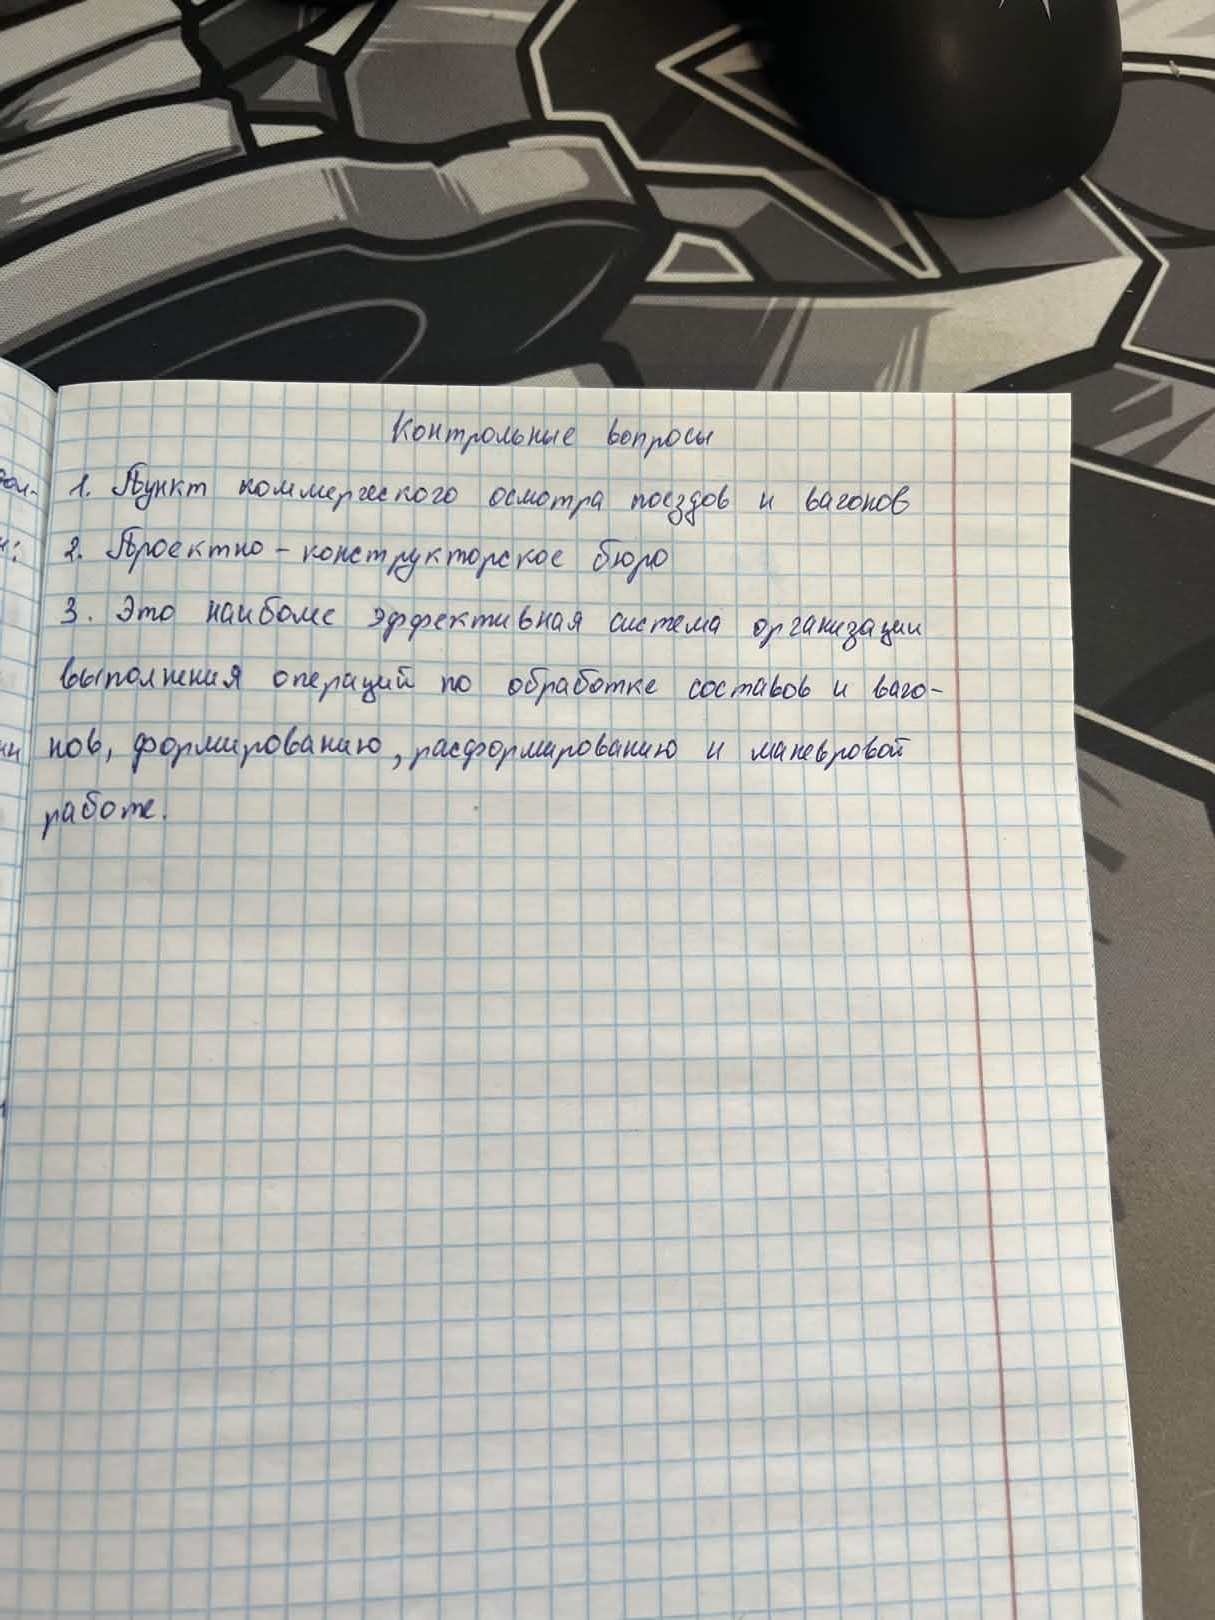 Контрольные вопросы
1. Пункт коммерческого осмотра поездов и вагонов
2. Проектно-конструкторское бюро
3. Это наиболее эффективная система организации
выполнения операций по обработке составов и ваго-
нов, формированию, расформированию и маневровой
работе.